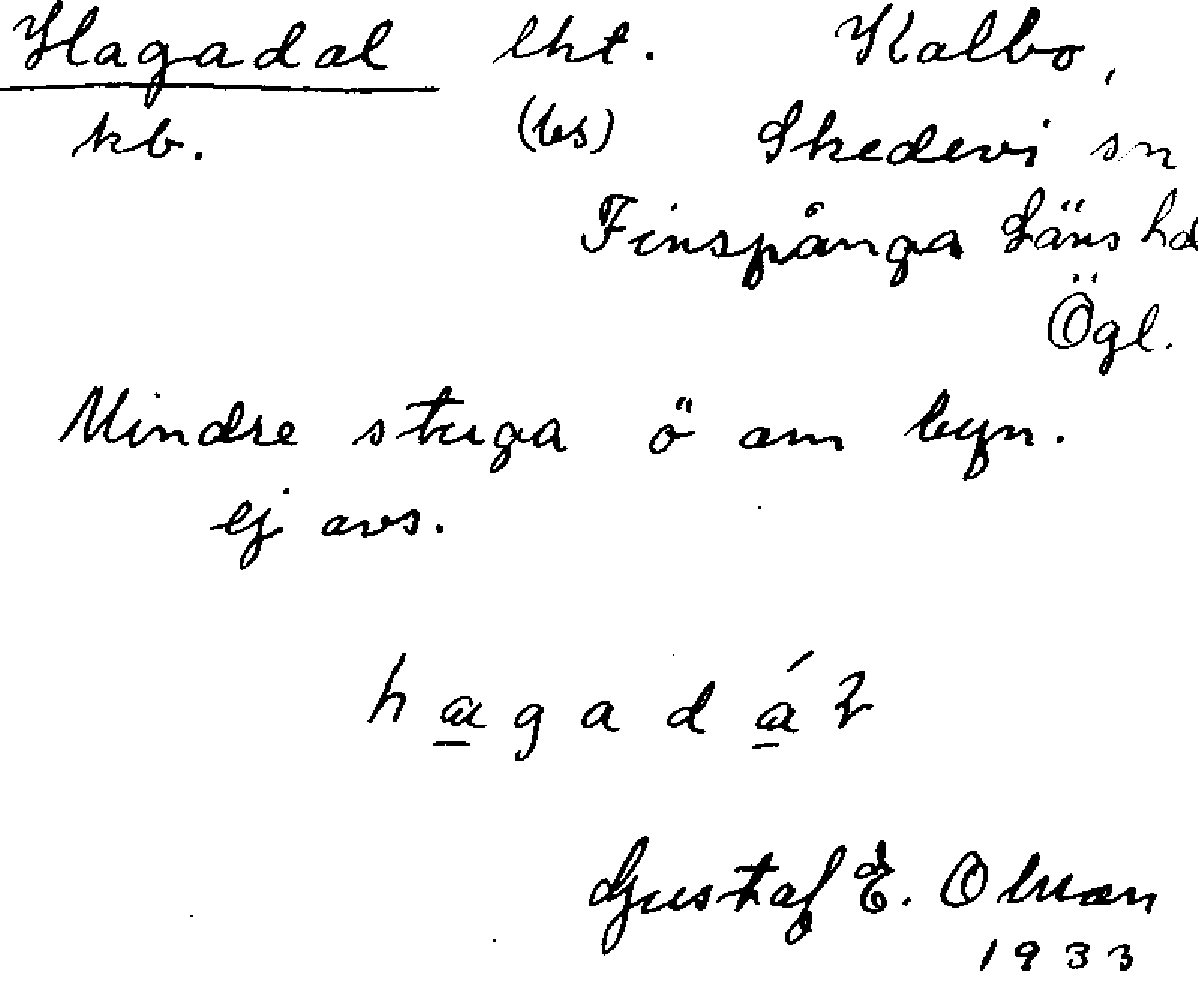 Hagadal lht. Kalbo,
kb. (bs) Skedevi sn
Finspånga Läns hd
Ögl.
Mindre stuga ö om byn.
ej avs.
hagadál
Gustaf E. Olsson
1933